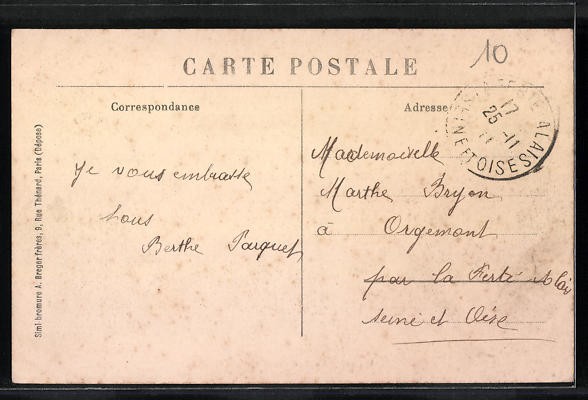 10
CARTE POSTALE
Correspondance
Adresse
17
25 -11
11
ALAIS
Je vous embrasse
tous
Berthe Parquet
Mademoiselle
Marthe Bryon
à Orgemont
par la Ferté Alais
Seine et Oise
Simi bromure A. Breger frères, 9, Rue Thénard, Paris (Déposé)